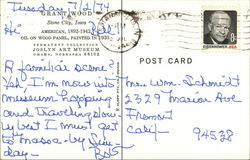 Tuesday 7/16/74
GRANT WOOD
Stone City, Iowa
AMERICAN, 1892-1942
OIL ON WOOD PANEL, PAINTED IN 1930
PERMANENT COLLECTION
JOSLYN ART MUSEUM
OMAHA, NEBRASKA
Hi
A familiar scene?
Yah, I'm now into
museum hopping
and traveling slow
ly but I must get
to Mass. by Sun
day.
Bob
JUL
1974
EISENHOWER USA
8c
POST CARD
Mr. Wm. Schmidt
2329 Marion Ave
Fremont
Calif
94538